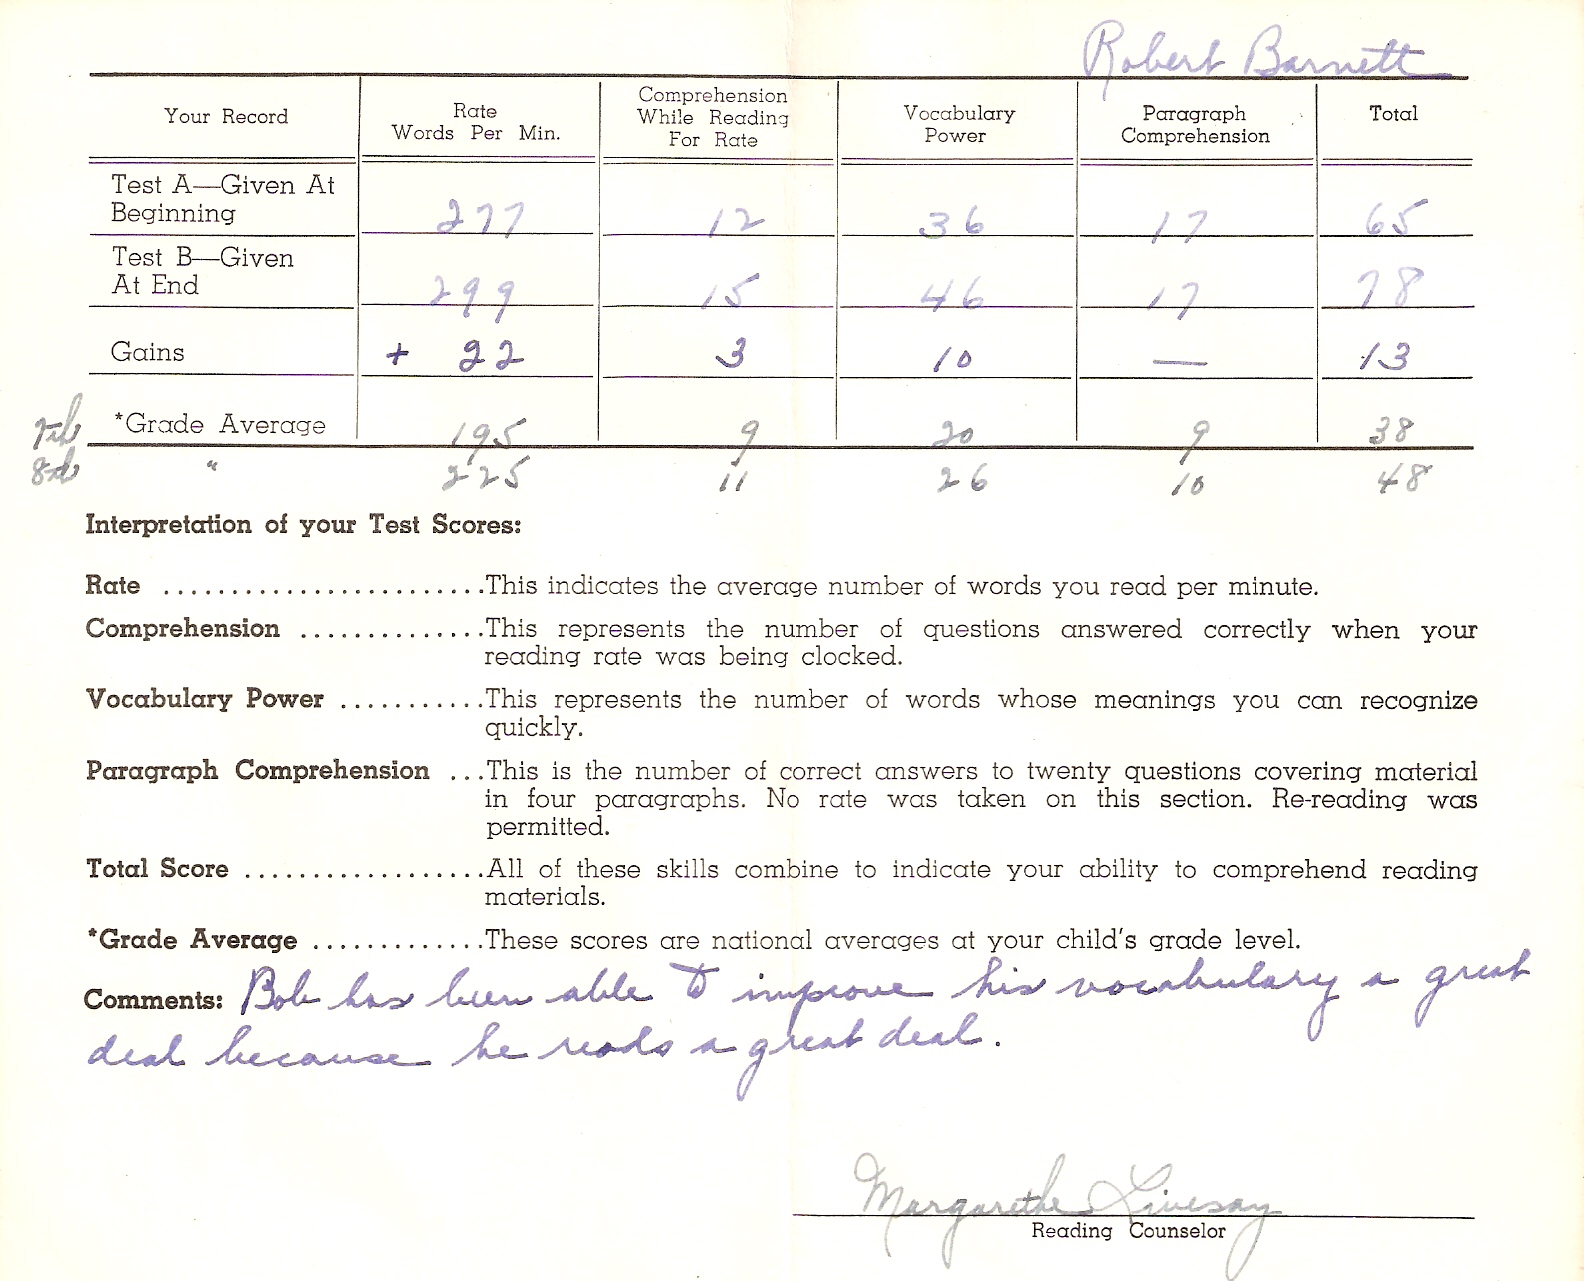 Robert Barnett
Your Record Rate Words Per Min. Comprehension While Reading For Rate Vocabulary Power Paragraph Comprehension Total
Test A—Given At Beginning 277 12 36 17 65
Test B—Given At End 299 15 46 17 78
Gains + 22 3 10 — 13
7th *Grade Average 195 9 20 9 38
8th " 225 11 26 10 48
Interpretation of your Test Scores:
Rate ........................This indicates the average number of words you read per minute.
Comprehension ..............This represents the number of questions answered correctly when your
reading rate was being clocked.
Vocabulary Power ...........This represents the number of words whose meanings you can recognize
quickly.
Paragraph Comprehension ...This is the number of correct answers to twenty questions covering material
in four paragraphs. No rate was taken on this section. Re-reading was
permitted.
Total Score ..................All of these skills combine to indicate your ability to comprehend reading
materials.
*Grade Average .............These scores are national averages at your child's grade level.
Comments: Bob has been able to improve his vocabulary a great
deal because he reads a great deal.
Margarethe Livesay
Reading Counselor